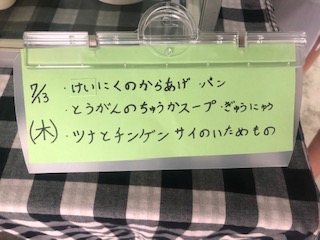 7/13 ・けいにくのからあげ ・パン
・とうがんのちゅうかスープ ・ぎゅうにゅう
(木) ・ツナとチンゲンサイのいためもの